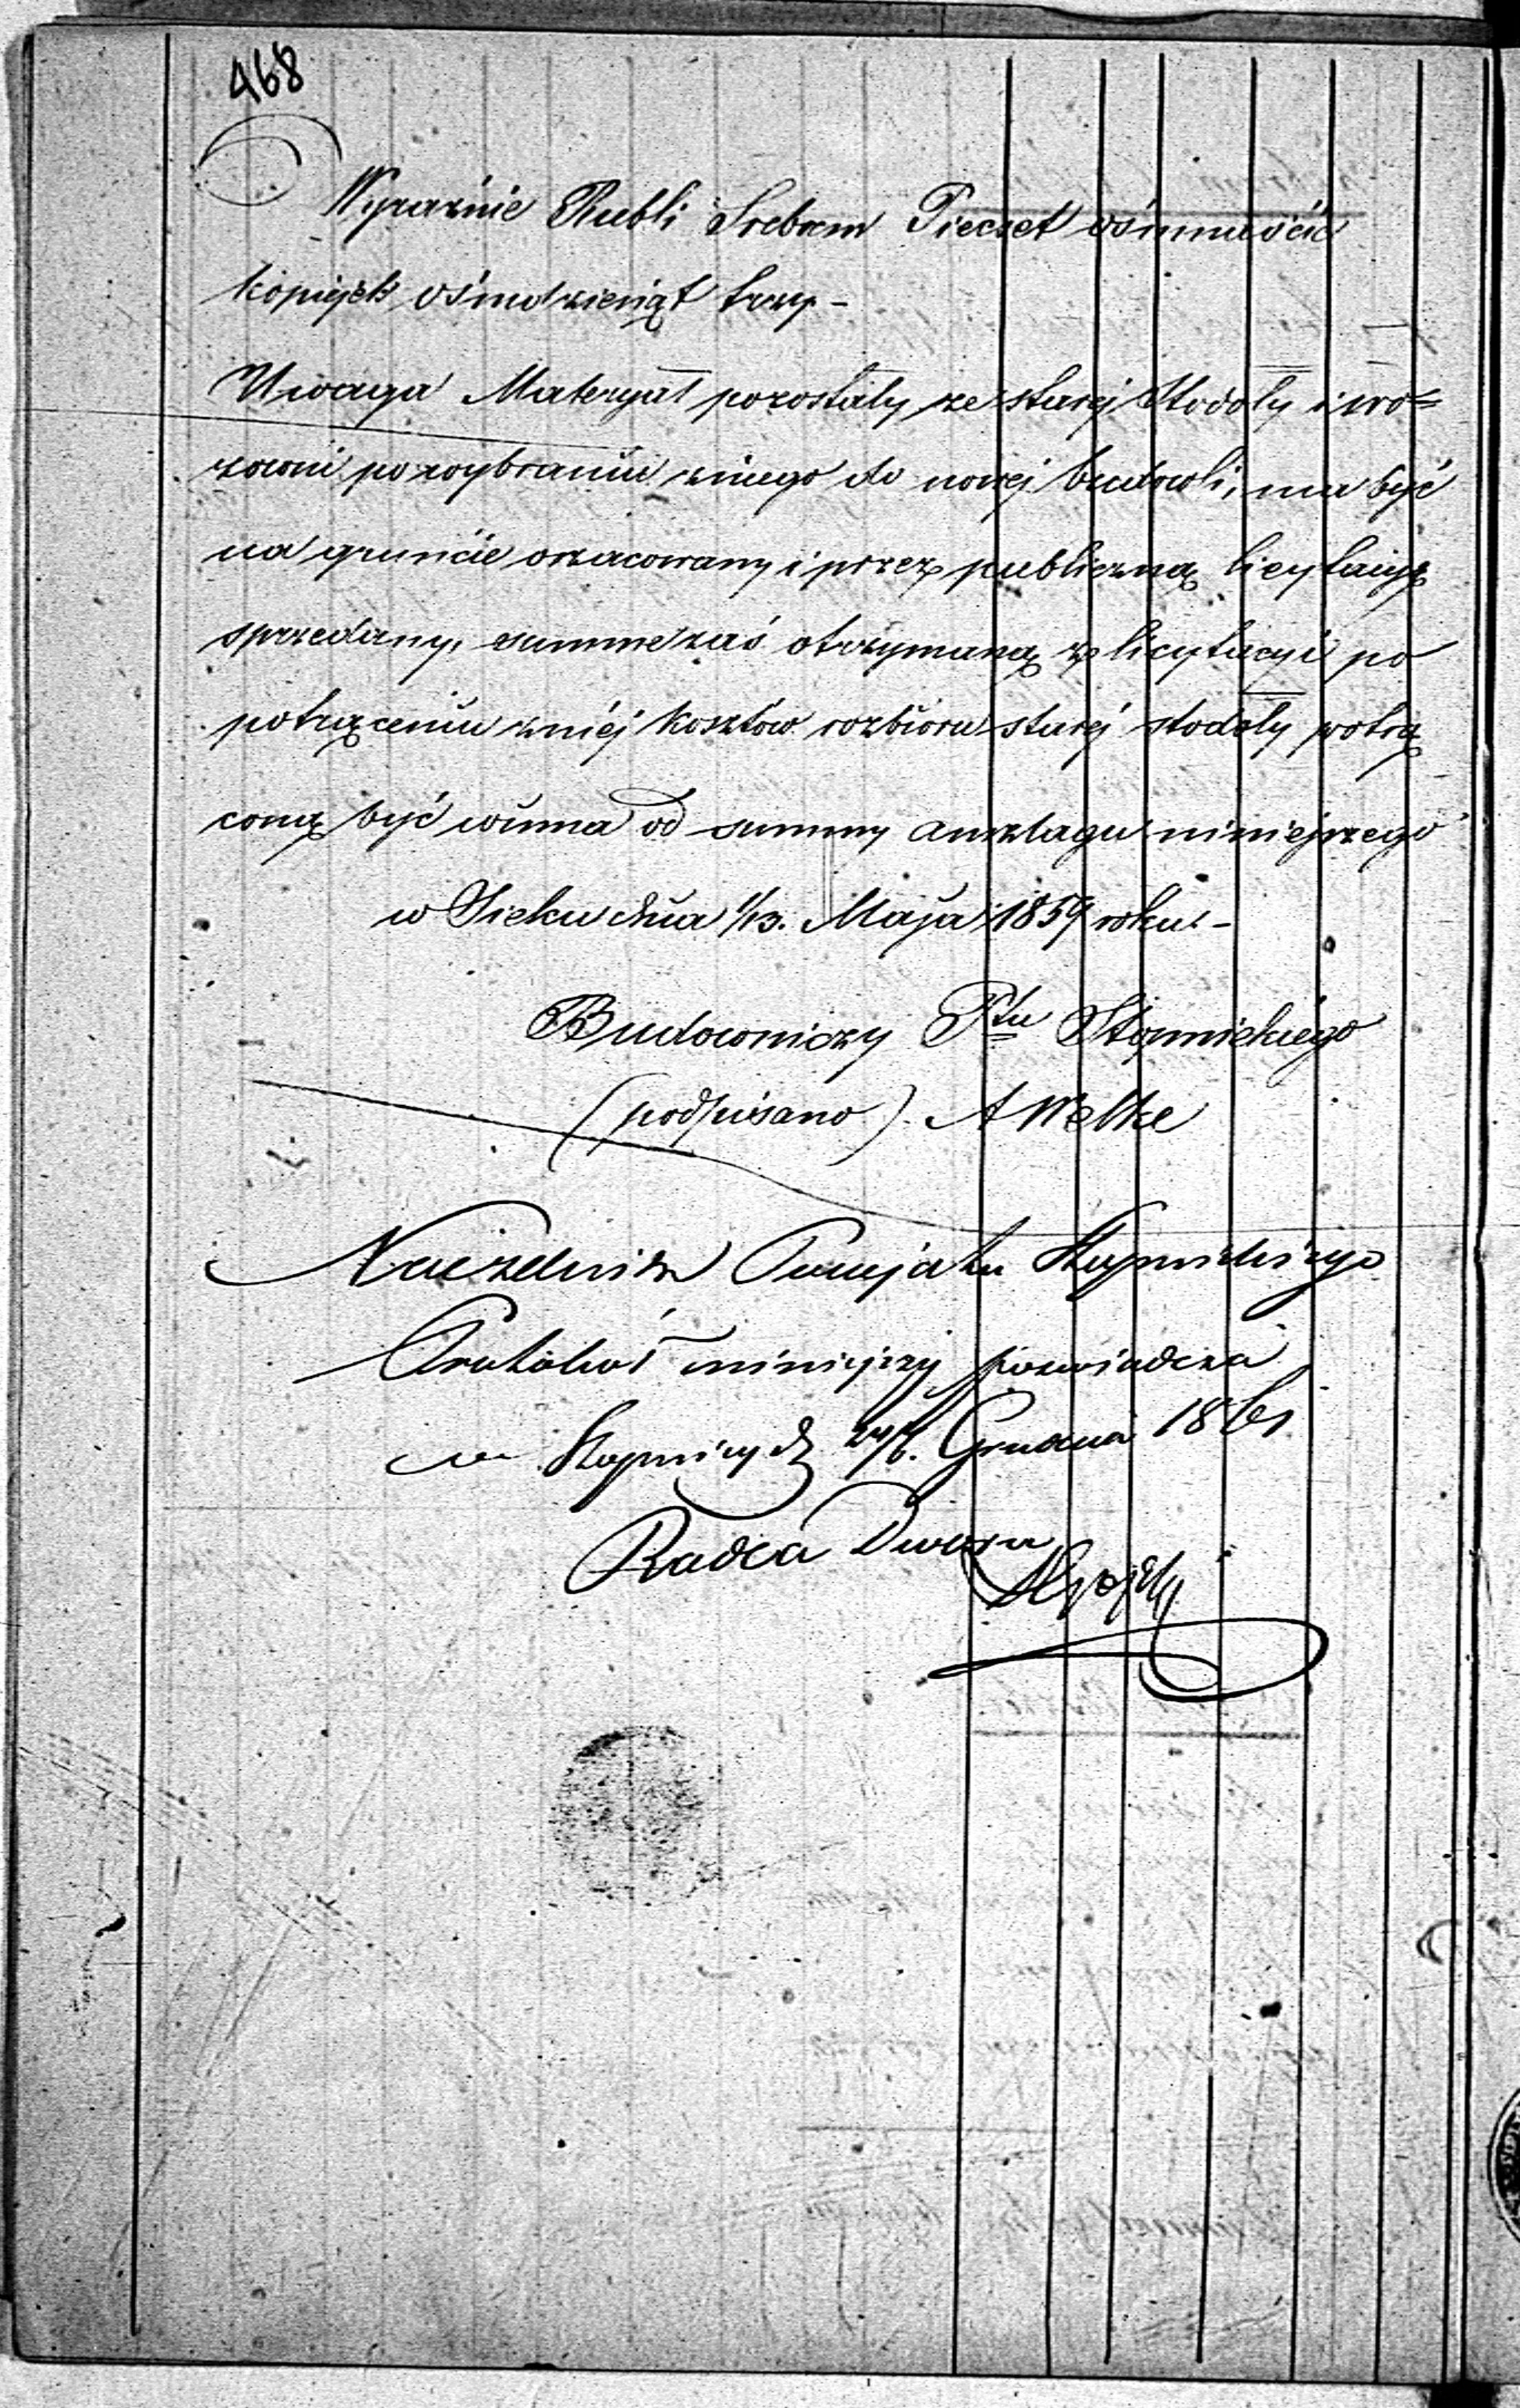 468
Wyraźnie Rubli Srebrem Piećset ośmnaście
kopiejek ośmdziesiąt trzy -
Uwaga Materyał pozostały ze starej Stodoły i wo=
zowni po wybraniu z niego do nowej budowli, ma być
na gruncie oszacowany i przez publiczną licytacyę
sprzedany, summe zaś otrzymaną z licytacyi po
potrąceniu z niej kosztów rozbioru starej stodoły potrą
coną być winna od summy anszlagu niniejszego
w Sieku dnia 1/13. Maja 1859 roku. -
Budowniczy Ptu Stopnickiego
(podpisano) A Welke
Naczelnik Powiatu Stopnickiego
niniejszy poswiadcza
w Stopnicy d. Grudnia 1861
Radca Dworu